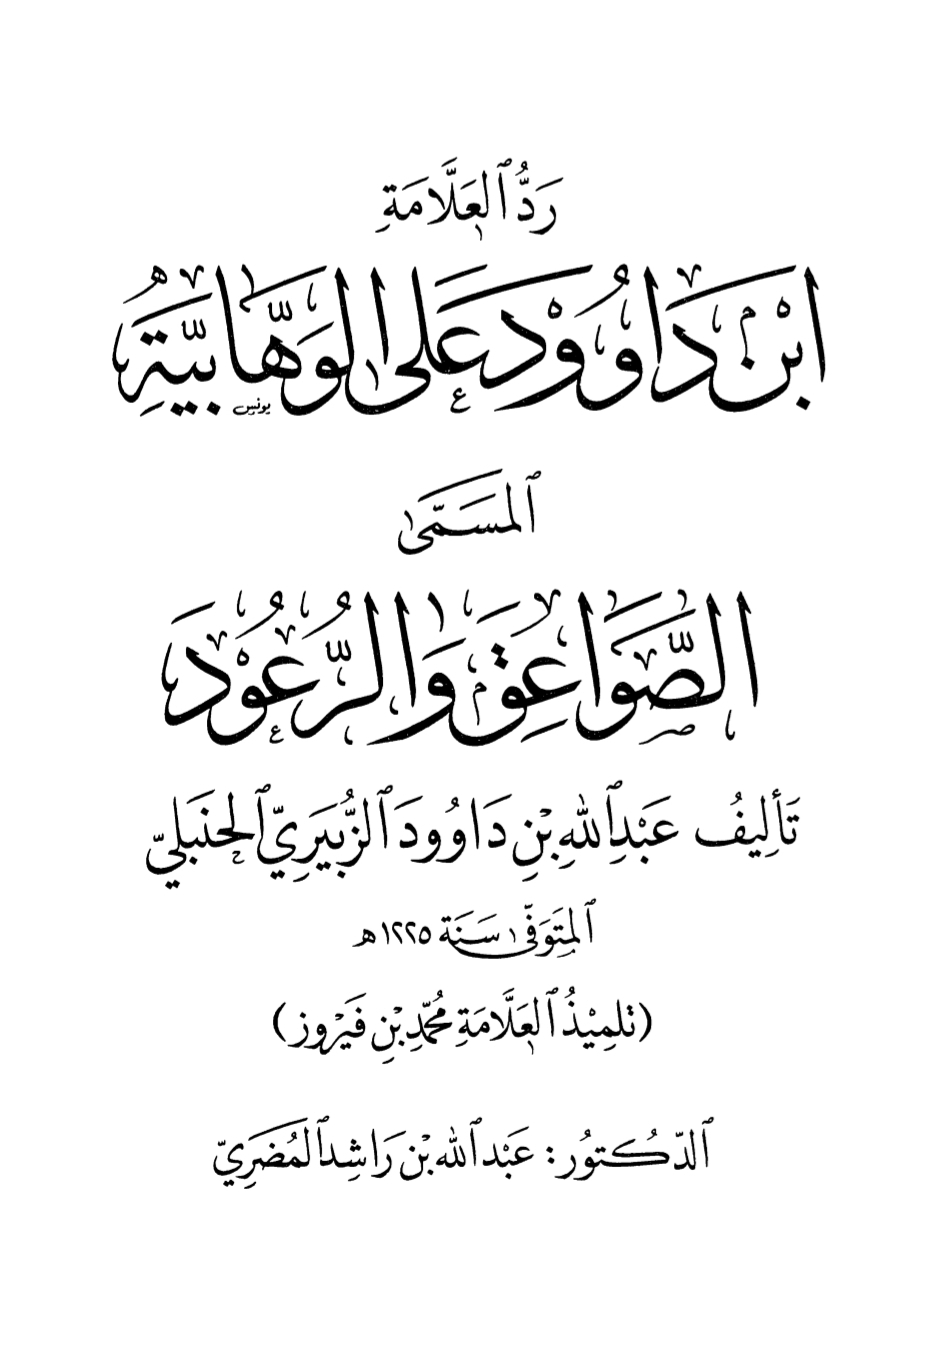 رَدُّ ٱلْعَلَّامَةِ
ابْنِ دَاوُودْ عَلَى الْوَهَّابِيَّةِ
يونس
ٱلْمُسَمَّىٰ
الصَّوَاعِقَ وَالرُّعُودَ
تَأْلِيفُ عَبْدِ ٱللهِ بْنِ دَاوُودَ ٱلزُّبَيْرِيِّ ٱلْحَنْبَلِيِّ
ٱلْمُتَوَفَّىٰ سَنَة ١٢٢٥ هـ
(تِلْمِيْذُ ٱلْعَلَّامَةِ مُحَمَّدِ بْنِ فَيْرُوز)
ٱلدّكتُور: عَبْد ٱلله بْن رَاشِد ٱلْمُضَرِيّ